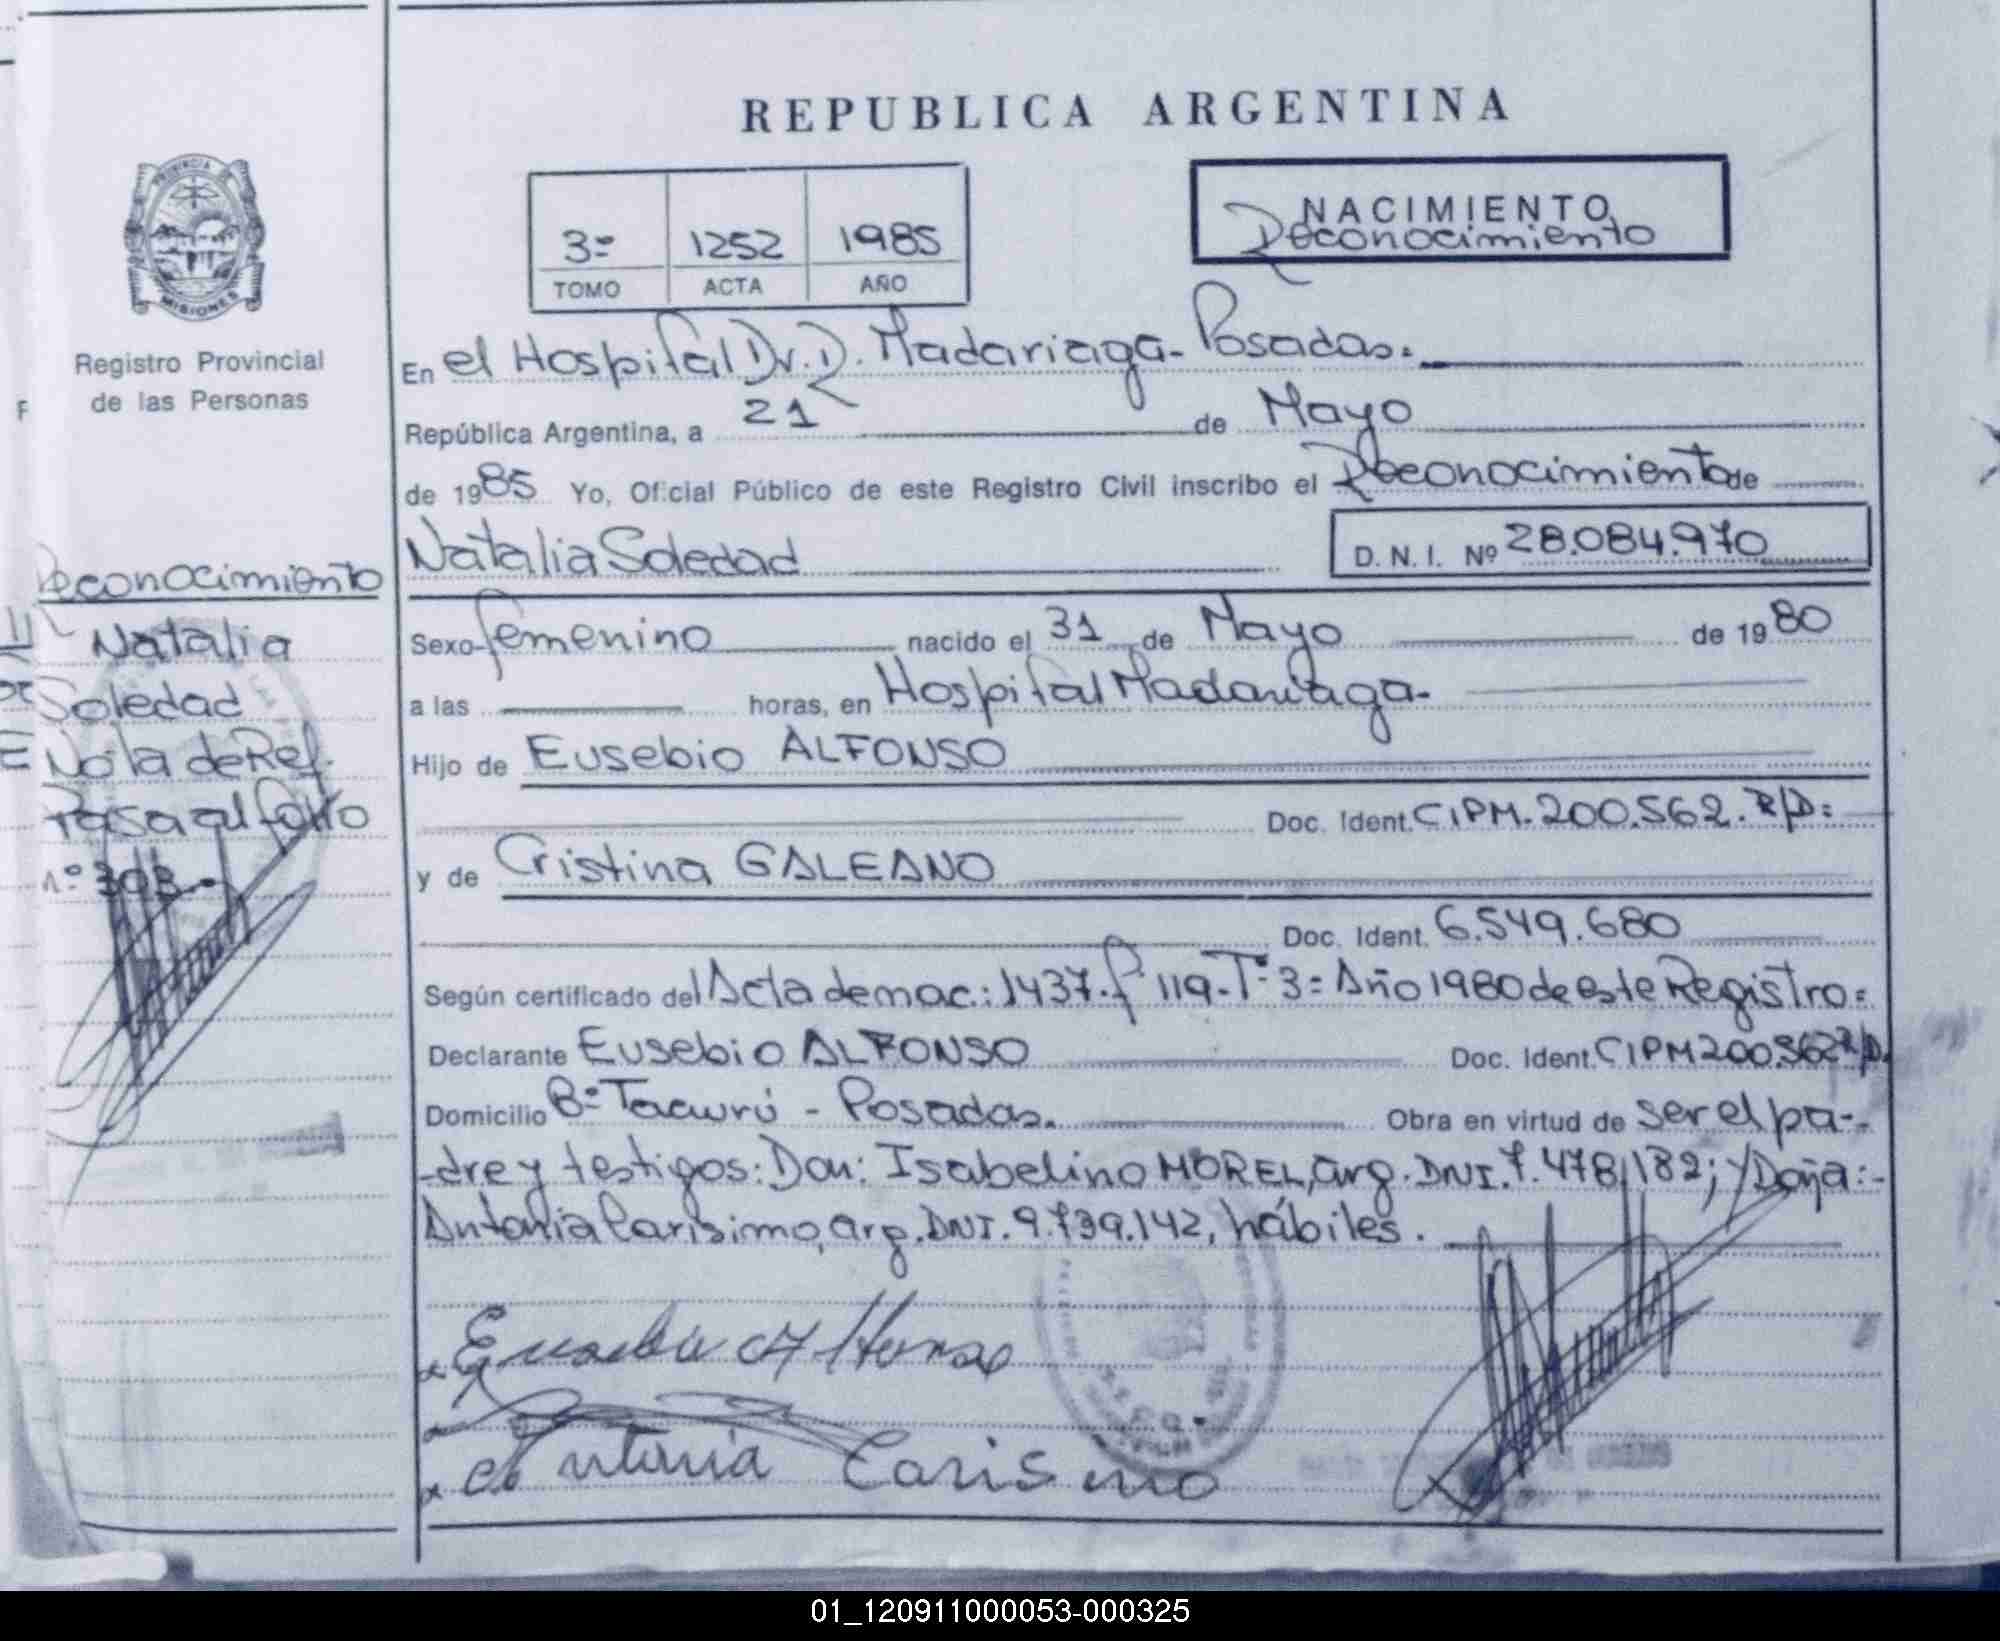 REPUBLICA ARGENTINA
PROVINCIA DE
MISIONES
Registro Provincial
de las Personas
3º 1252 1985
TOMO ACTA AÑO
NACIMIENTO
Reconocimiento
En el Hospital Dr. D. Madariaga - Posadas.
República Argentina, a 21 de Mayo
de 1985 Yo, Oficial Público de este Registro Civil inscribo el Reconocimiento de
Natalia Soledad D. N. I. Nº 28.084.970
Sexo femenino nacido el 31 de Mayo de 1980
a las horas, en Hospital Madariaga.
Hijo de Eusebio ALFONSO
Doc. Ident. CIPM. 200.562. R/D=
y de Cristina GALEANO
Doc. Ident. 6.549.680
Según certificado del Acta de nac.: 1437. fº 119. Tº 3= Año 1980 de este Registro=
Declarante Eusebio ALFONSO Doc. Ident. CIPM 200.562 R/D.
Domicilio Bº Tacurú - Posadas. Obra en virtud de ser el pa-
-dre y testigos: Don: Isabelino MOREL, arg. DNI. 7.478.182; y Doña:-
Antonia Carisimo, arg. DNI. 9.739.142, hábiles.
Eusebio Alfonso
Antonia Carisimo
Reconocimiento
Natalia
Soledad
Nota de Ref.
Pasa al folio
nº 303.-
01_120911000053-000325